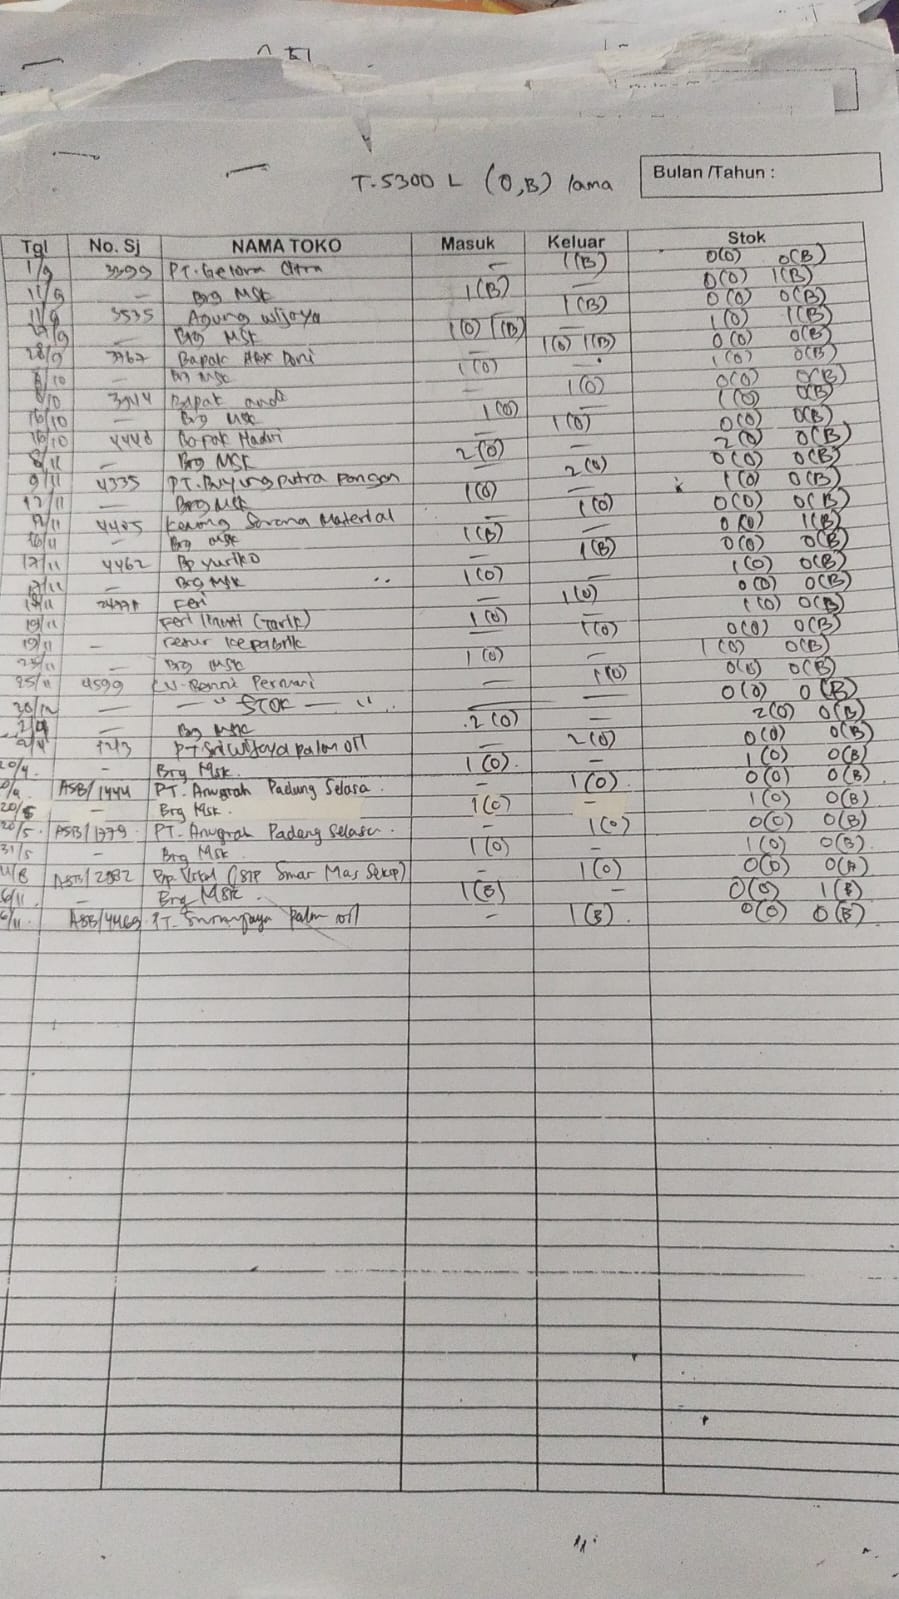 T-5300 L (O,B) lama
Bulan /Tahun :
Tgl No. Sj NAMA TOKO Masuk Keluar Stok
1/9 3399 PT. Gelora Citra - 1(B) 0(O) 0(B)
11/9 - Brg Msk 1(B) - 0(O) 1(B)
11/9 3535 Agung Wijaya 1(B) 0(O) 0(B)
27/9 - Brg MSK 1(O) 1(B) - 1(O) 1(B)
28/9 3767 Bapak Alex Doni - 1(O) 1(B) 0(O) 0(B)
8/10 - Brg MSK 1(O) - 1(O) 0(B)
8/10 3944 Bapak - 1(O) 0(O) 0(B)
16/10 - Brg MSK 1(O) - 1(O) 0(B)
16/10 4448 Bapak Hadiri - 1(O) 0(O) 0(B)
8/11 - Brg MSK 2(O) - 2(O) 0(B)
9/11 4335 PT. Buyung Putra Pangan - 2(O) 0(O) 0(B)
12/11 - Brg MSK 1(O) - 1(O) 0(B)
4405 Karang Sarana Material - 1(O) 0(O) 0(B)
16/11 - Brg MSK 1(B) - 0(O) 1(B)
17/11 4462 Bp Yuriko - 1(B) 0(O) 0(B)
17/11 - Brg Msk 1(O) - 1(O) 0(B)
Feri - 1(O) 0(O) 0(B)
19/11 Feri (Tarik) 1(O) - 1(O) 0(B)
19/11 - retur ke pabrik - 1(O) 0(O) 0(B)
25/11 - Brg MSK 1(O) - 1(O) 0(B)
25/11 4599 CV. Benni Permari - 1(O) 0(O) 0(B)
30/12 - - " STOK - " - - 0(O) 0(B)
- Brg MSK 2(O) - 2(O) 0(B)
PT Sriwijaya Palm Oil - 2(O) 0(O) 0(B)
20/4 - Brg Msk. 1(O) - 1(O) 0(B)
ASB/1444 PT. Anugrah Padang Selasa. - 1(O) 0(O) 0(B)
20/5 - Brg Msk. 1(O) - 1(O) 0(B)
20/5. ASB/1779 PT. Anugrah Padang Selasa. - 1(O) 0(O) 0(B)
31/5 - Brg Msk 1(O) - 1(O) 0(B)
11/8 ASB/2982 Bp. (STP Sinar Mas Sekip) - 1(O) 0(O) 0(B)
6/11 - Brg Msk. 1(B) - 0(O) 1(B)
6/11 ASB/4469 PT. Palm Oil - 1(B). 0(O) 0(B)